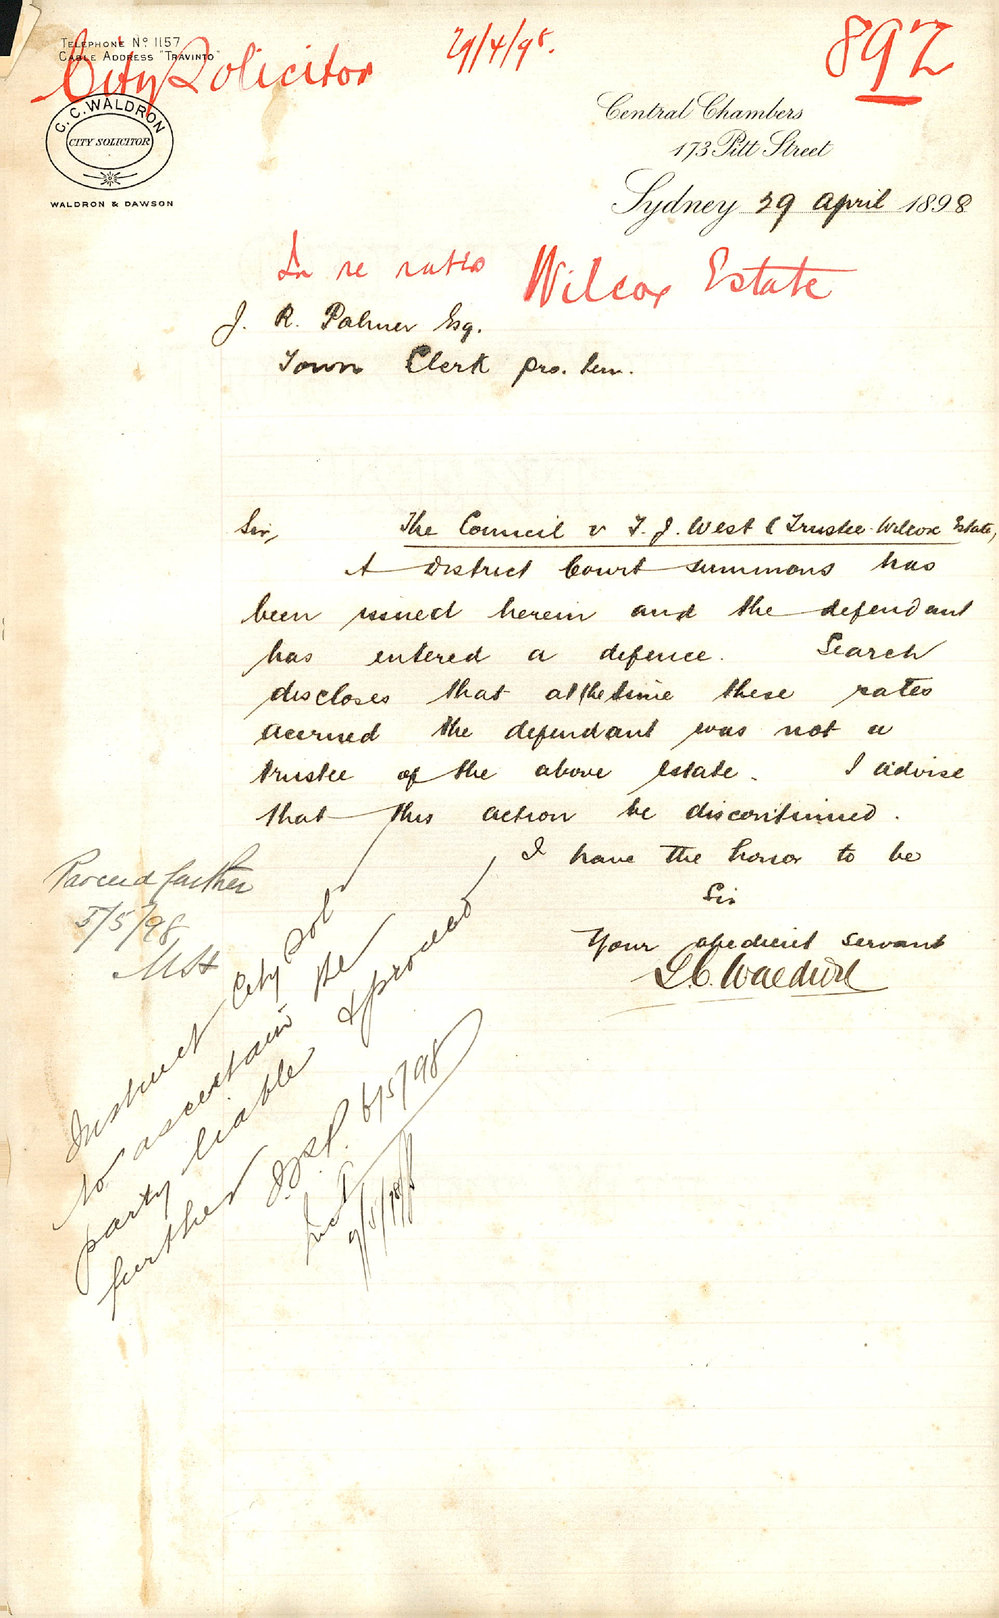 TELEPHONE Nº 1157
CABLE ADDRESS "TRAVINTO"
City Solicitor
29/4/98.
892
C. C. WALDRON
CITY SOLICITOR
WALDRON & DAWSON
Central Chambers
173 Pitt Street
Sydney 29 April 1898
In re rates Wilcox Estate
J. R. Palmer Esq.
Town Clerk pro. tem.
Sir, The Council v T. J. West (Trustee Wilcox Estate)
A District Court summons has
been issued herein and the defendant
has entered a defence. Search
discloses that at the time these rates
accrued the defendant was not a
trustee of the above estate. I advise
that this action be discontinued.
I have the honor to be
Sir
Your obedient servant
C. C. Waldron
5/5/98
Instruct City Sol
to ascertain the
party liable & proceed
further 6/5/98